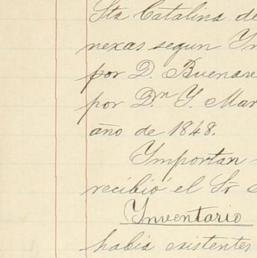 Sta Catalina de
nexas segun In
por D. Buenave
por Dn Y. Mar
año de 1848.
Importan
recibió el Sr
Inventario
habia existentes